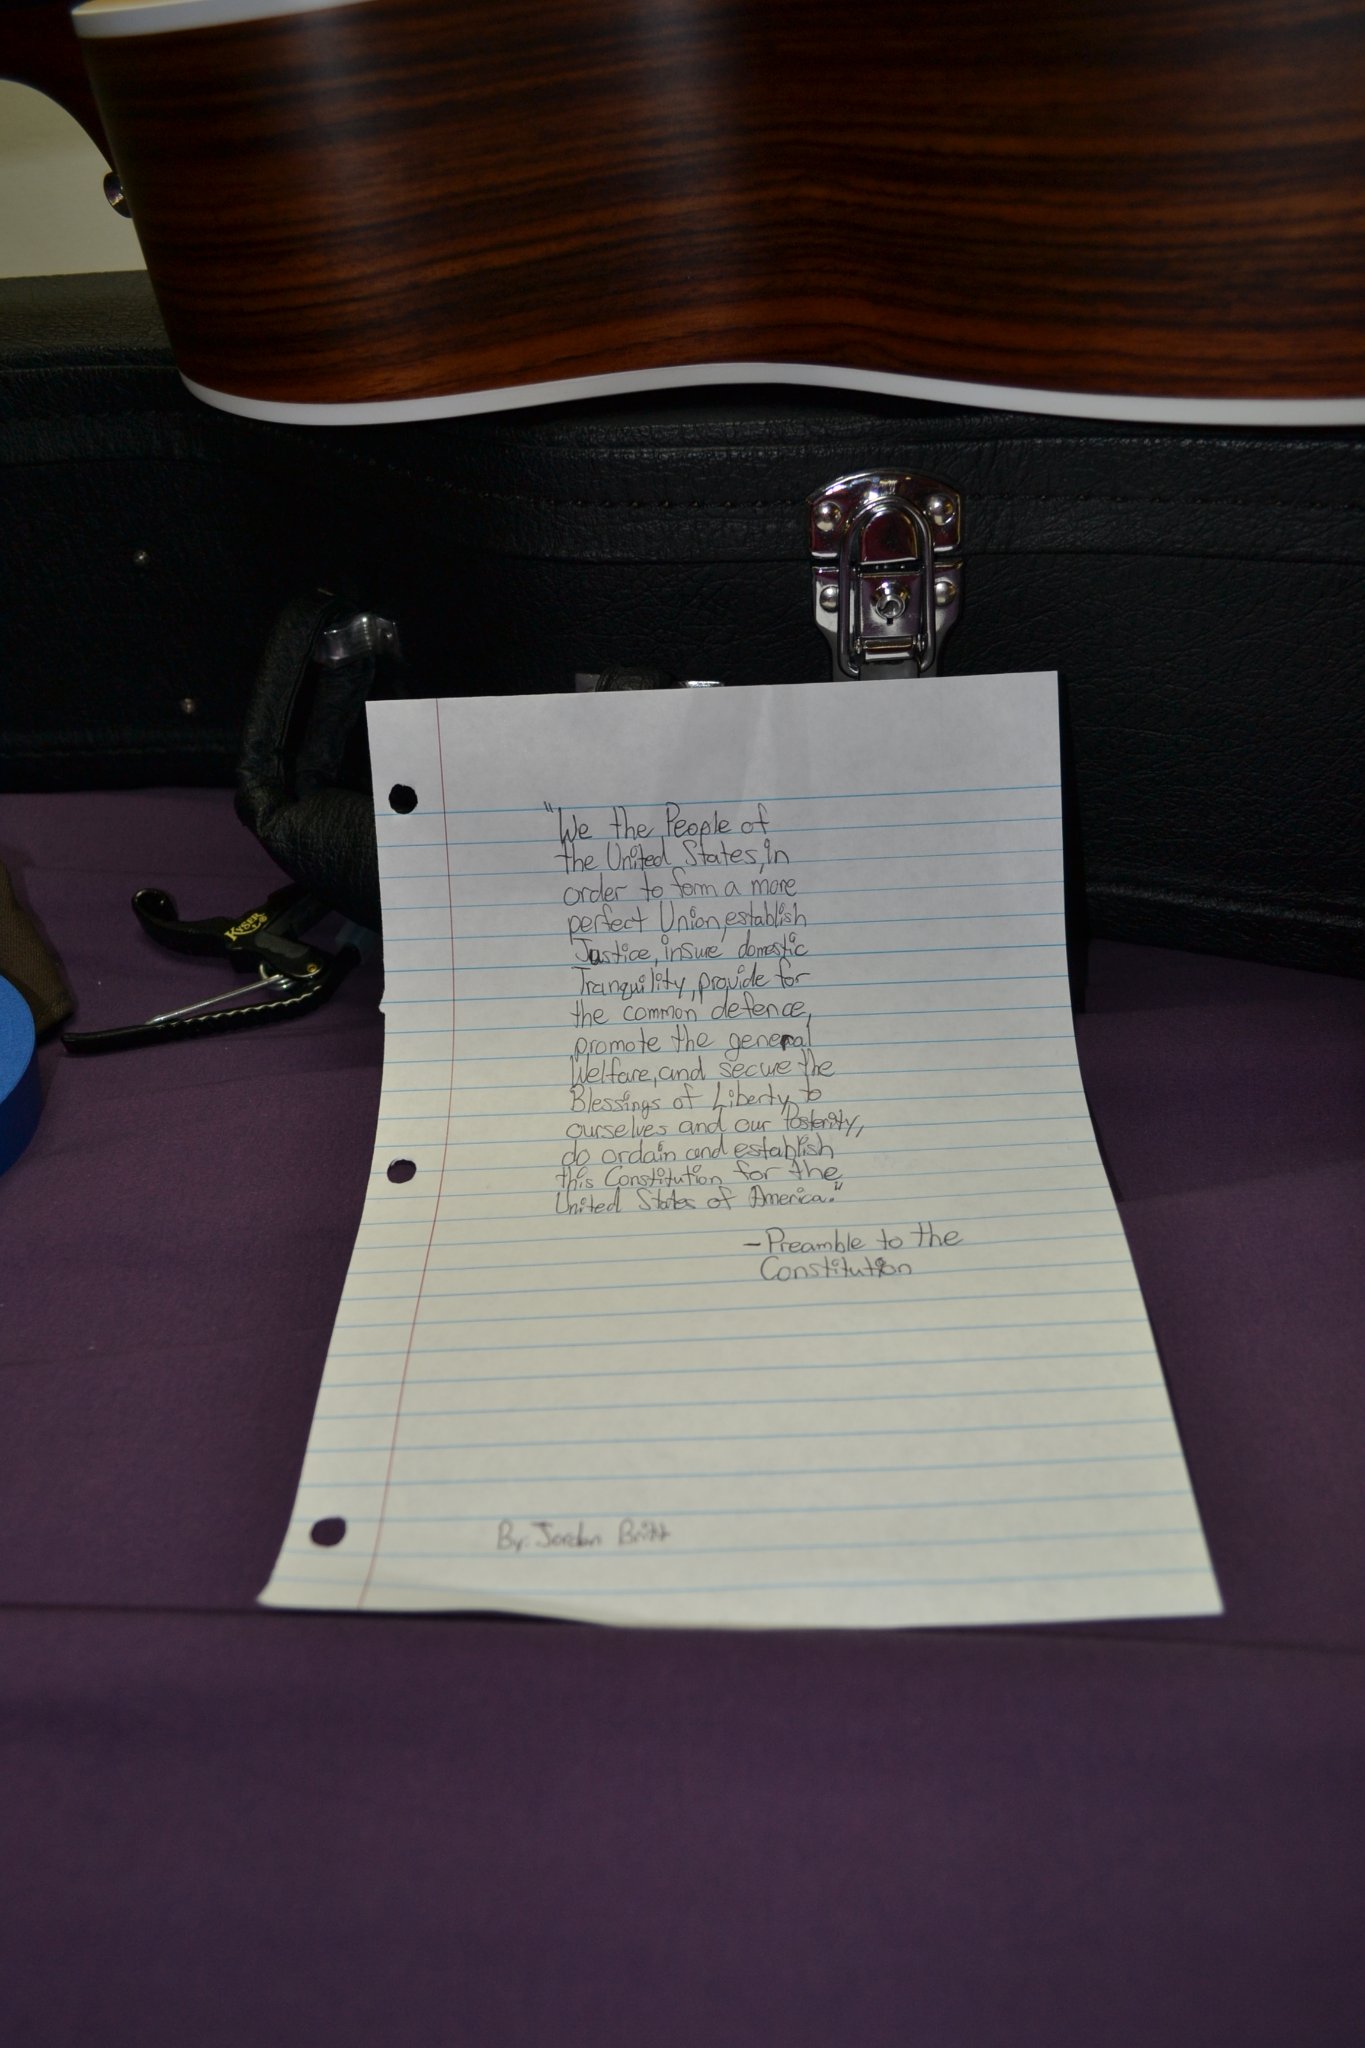 "We the People of
the United States, in
order to form a more
perfect Union, establish
Justice, insure domestic
Tranquility, provide for
the common defence,
promote the general
Welfare, and secure the
Blessings of Liberty to
ourselves and our Posterity,
do ordain and establish
this Constitution for the
United States of America."
-Preamble to the
Constitution
By: Jordan Britt
KYSER